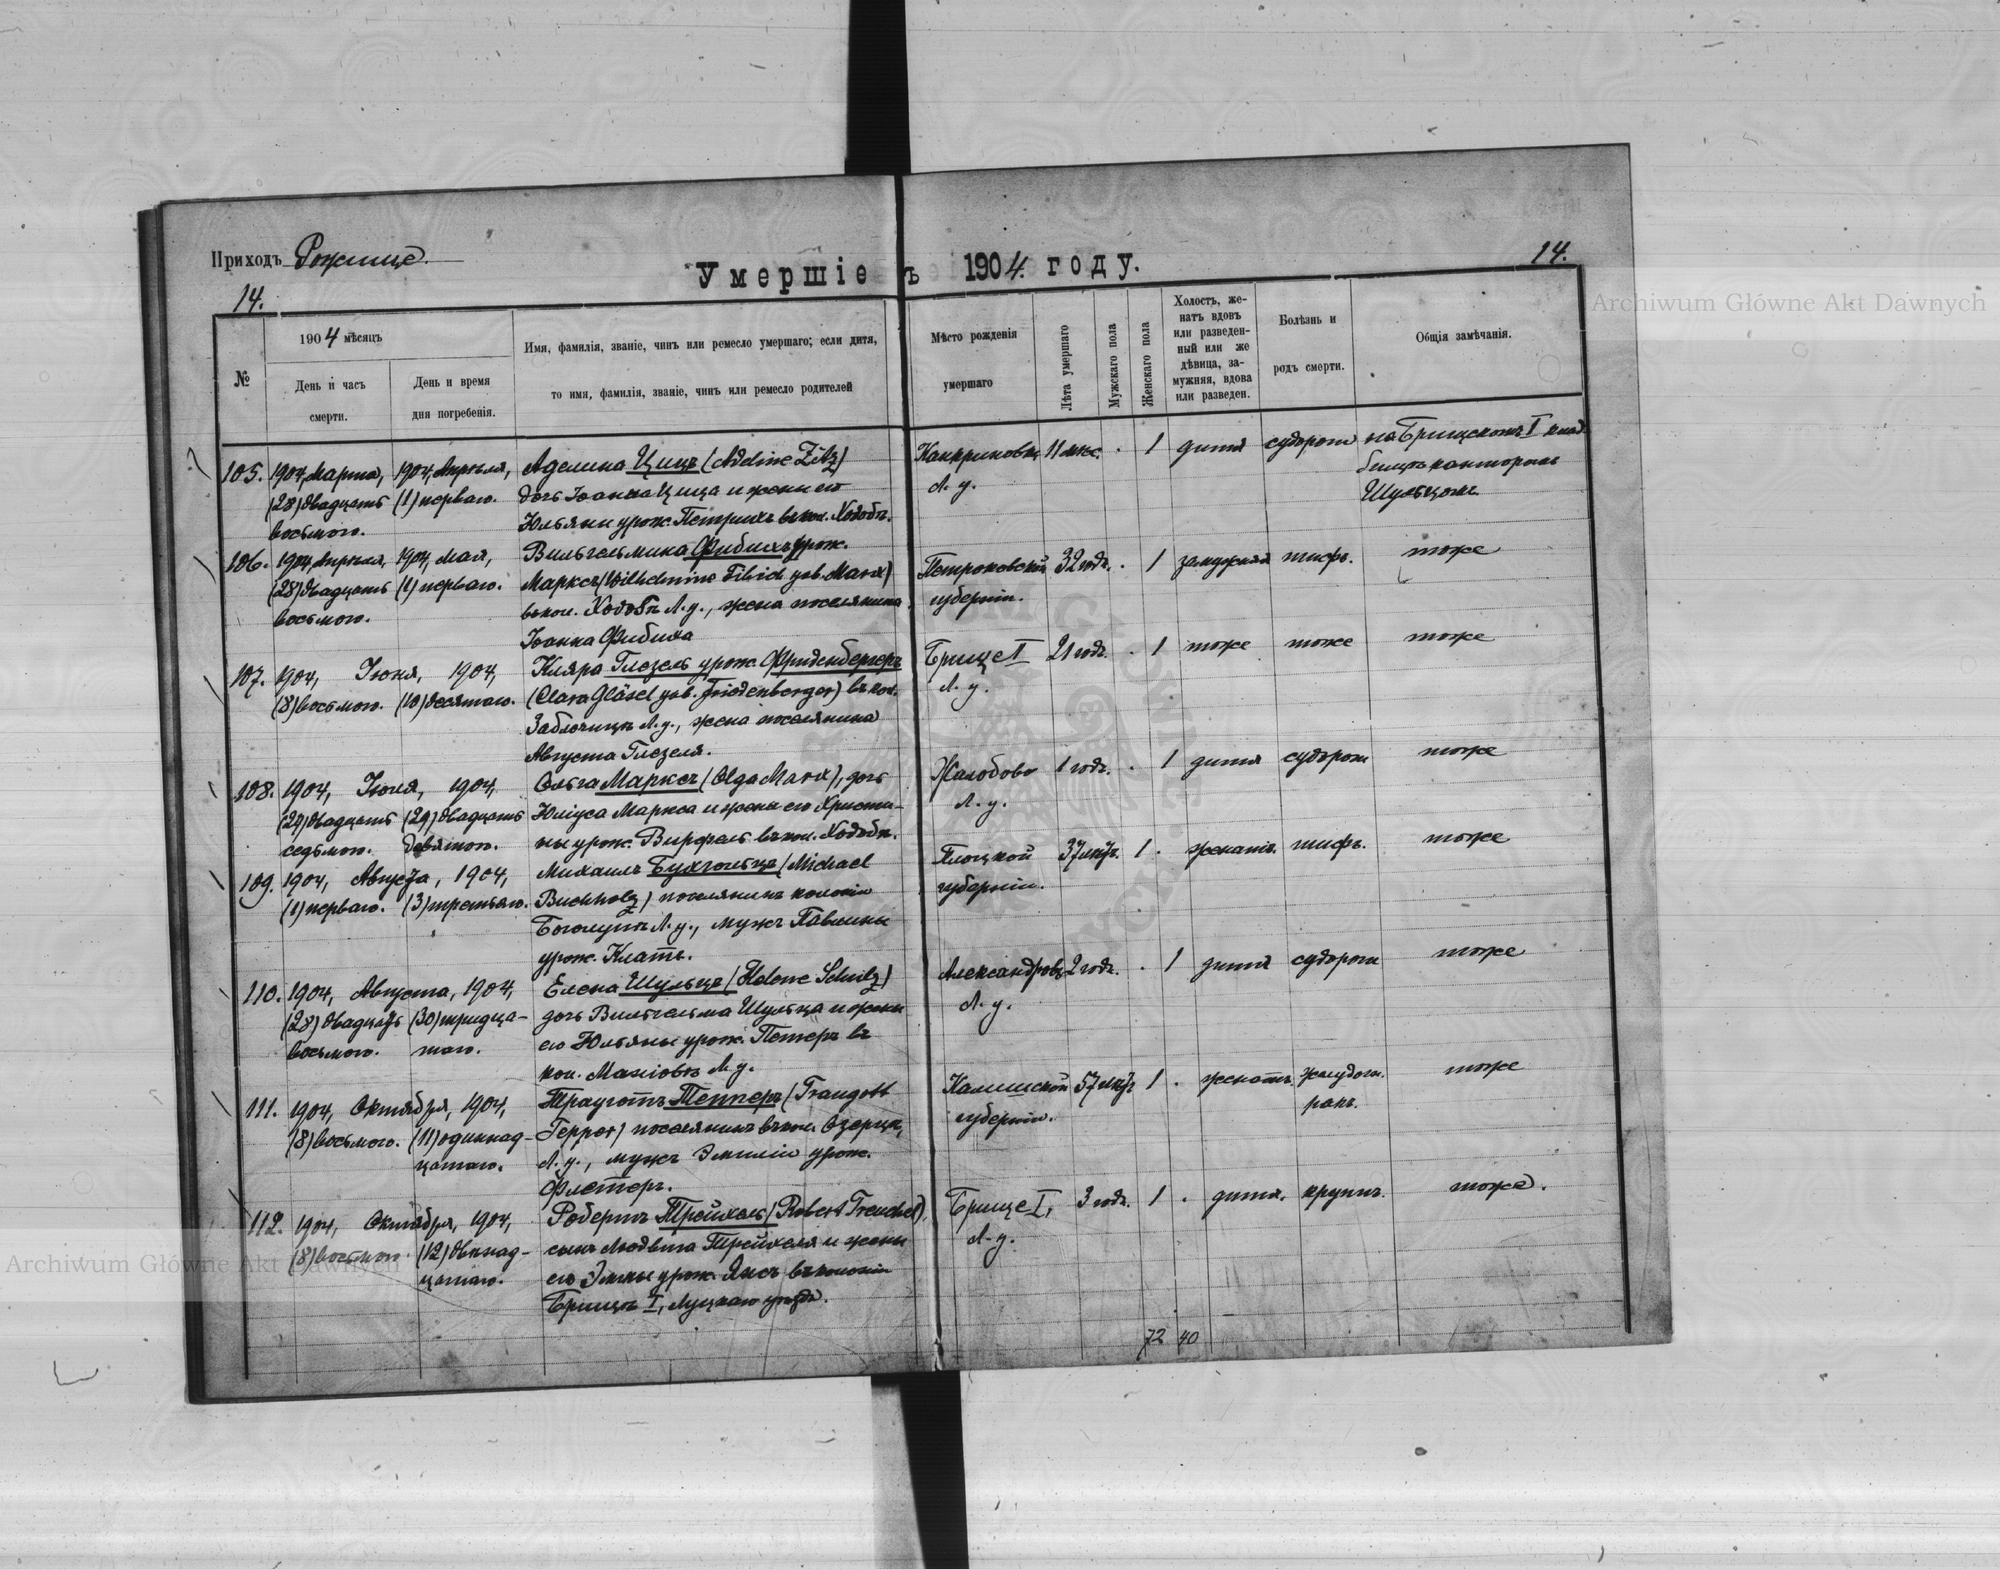 Приходъ Рожище
14.
Умершіе въ 1904 году.
14.
№
1904 мѣсяцъ
День и часъ смерти.
День и время дня погребенія.
Имя, фамилія, званіе, чинъ или ремесло умершаго; если дитя,
то имя, фамилія, званіе, чинъ или ремесло родителей
Мѣсто рожденія
умершаго
Лѣта умершаго
Мужскаго пола
Женскаго пола
Холостъ, же-
натъ вдовъ
или разведен-
ный или же
дѣвица, за-
мужняя, вдова
или разведен.
Болѣзнь и
родъ смерти.
Общія замѣчанія.
105. 1904, Марта, 1904, Апрѣля, Аделина Цицъ (Adeline Zitz) 11 мѣс. . 1 дитя судороги на Брищскомъ I клад-
(28) двадцать (1) перваго. дочь Іоанна Цица и жены его Л. у. бищѣ канторомъ
восьмого. Юльяны урож. Петрихъ въ кол. Ходобк. Шульцомъ.
106. 1904, Апрѣля, 1904, Мая, Вильгельмина Фибихъ урож. Петроковской 32 годъ. . 1 замужняя тифъ. тоже
(28) двадцать (1) перваго. Марксъ (Wilhelmine Fibich geb. Marx) губерніи.
восьмого. въ кол. Ходобк. Л. у., жена поселянина
Іоанна Фибиха
107. 1904, Іюня, 1904, Клара Глезель урож. Фриденбергеръ Брище II 21 годъ. . 1 тоже тоже тоже
(8) восьмого. (10) десятаго. (Clara Gläsel geb. Friedenberger) въ кол. Л. у.
Заблочицѣ Л. у., жена поселянина
Августа Глезеля.
108. 1904, Іюня, 1904, Ольга Марксъ (Olga Marx), дочь Жалобово 1 годъ. . 1 дитя судорог. тоже
(27) двадцать (29) двадцать Юліуса Маркса и жены его Христи- Л. у.
седьмого. девятого. ны урож. Вирфель въ кол. Ходобк.
109. 1904, Августа, 1904, Михаилъ Бухгольцъ (Michael Плоцкой 37 лѣтъ. 1 . женатъ. тифъ. тоже
(1) перваго. (3) третьяго. Buchholz) поселянинъ колоніи губерніи.
Л. у., мужъ Павлины
урож. Клаттъ.
110. 1904, Августа, 1904, Елена Шульцъ (Helene Schulz) Александровк. 2 годъ. . 1 дитя судороги тоже
(28) двадцать (30) тридца- дочь Вильгельма Шульца и жены Л. у.
восьмого. таго. его Юльяны урож. Петеръ въ
кол. Махіовк. Л. у.
111. 1904, Октября, 1904, Трауготтъ Тепперъ (Traugott Калишской 57 лѣтъ 1 . женатъ. желудочн. тоже
(8) восьмого. (11) одиннад- Tepper) поселянинъ въ кол. Озерцѣ, губерніи. ракъ.
цатаго. Л. у., мужъ Эмиліи урож.
Флеттеръ.
112. 1904, Октября, 1904, Робертъ Трейхель (Robert Treuchel), Брище I, 3 годъ. 1 . дитя. крупъ. тоже.
(8) восьмого. (12) двѣнад- сынъ Людвига Трейхеля и жены Л. у.
цатаго. его Эммы урож. Янсъ въ колоніи
Брищѣ I, Луцкаго уѣзда.
72 40
Archiwum Główne Akt Dawnych
Archiwum Główne Akt Dawnych